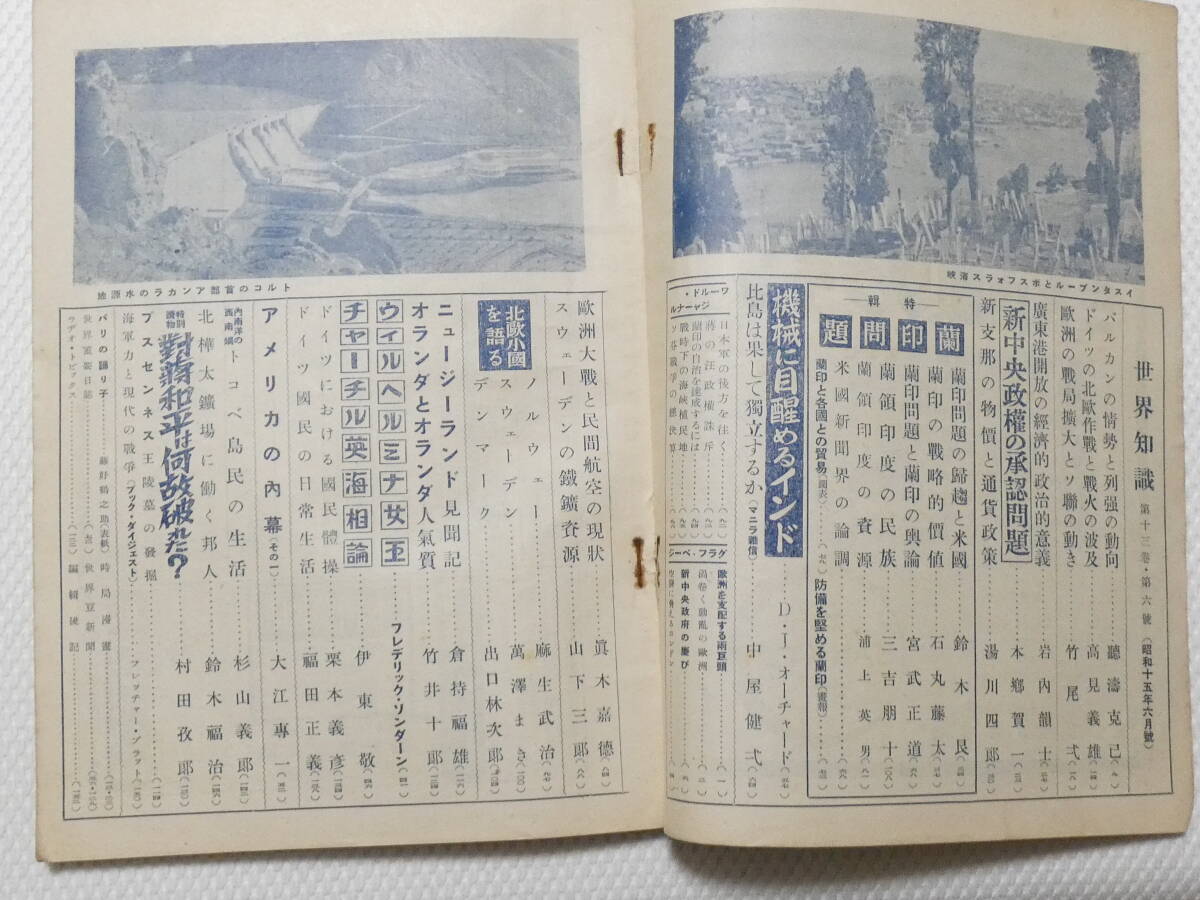 イスタンブールとボスフォラス海峡
世界知識 第十三卷・第六號 (昭和十五年六月號)
バルカンの情勢と列强の動向……聽濤克己
ドイツの北歐作戰と戰火の波及……高見義雄
歐洲の戰局擴大とソ聯の動き……竹尾弌
廣東港開放の經濟的政治的意義……岩內韻士
新中央政權の承認問題……本鄕賀一
新支那の物價と通貨政策……湯川四郞
特輯
蘭印問題
蘭印問題の歸趨と米國……鈴木艮
蘭印の戰略的價値……石丸藤太
蘭印問題と蘭印の輿論……宮武正道
蘭領印度の民族……三吉朋十
蘭領印度の資源……浦上英男
米國新聞界の論調
蘭印と各國との貿易(圖表)
防備を堅める蘭印(畫報)
機械に目醒めるインド……D・J・オーチャード
比島は果して獨立するか(マニラ通信)……中屋健弌
ワールド・ジャーナル
日本軍の後方を往く
蔣の汪政權誅斥
蘭印の自治を達成するには
戰時下の海峽植民地
ソ芬戰爭の總決算
グラフ・ページ
歐洲を支配する兩巨頭
渦卷く動亂の歐洲
新中央政府の慶び
トルコの首都アンカラの水源地
歐洲大戰と民間航空の現狀……眞木嘉德
スウェーデンの鐵鑛資源……山下三郞
北歐小國を語る
ノルウェー……麻生武治
スウェーデン……萬澤まき
デンマーク……出口林次郞
ニュージーランド見聞記……倉持福雄
オランダとオランダ人氣質……竹井十郞
ウィルヘルミナ女王……フレデリック・ソンダーン
チャーチル英海相論……伊東敬
ドイツにおける國民體操……栗本義彥
ドイツ國民の日常生活……福田正義
アメリカの內幕(その一)……大江專一
內南洋の西南端トコベ島民の生活……杉山義郞
北樺太鑛場に働く邦人……鈴木福治
特別讀物 對蔣和平は何故破れた?……村田孜郞
プスセンネス王陵墓の發掘
海軍力と現代の戰爭(ブック・ダイジェスト)……フレッチャー・プラット
パリの踊り子……藤野鶴之助(表紙)
時局漫畫
世界重要日誌
世界豆新聞
ラヂオ・トピックス
編輯後記